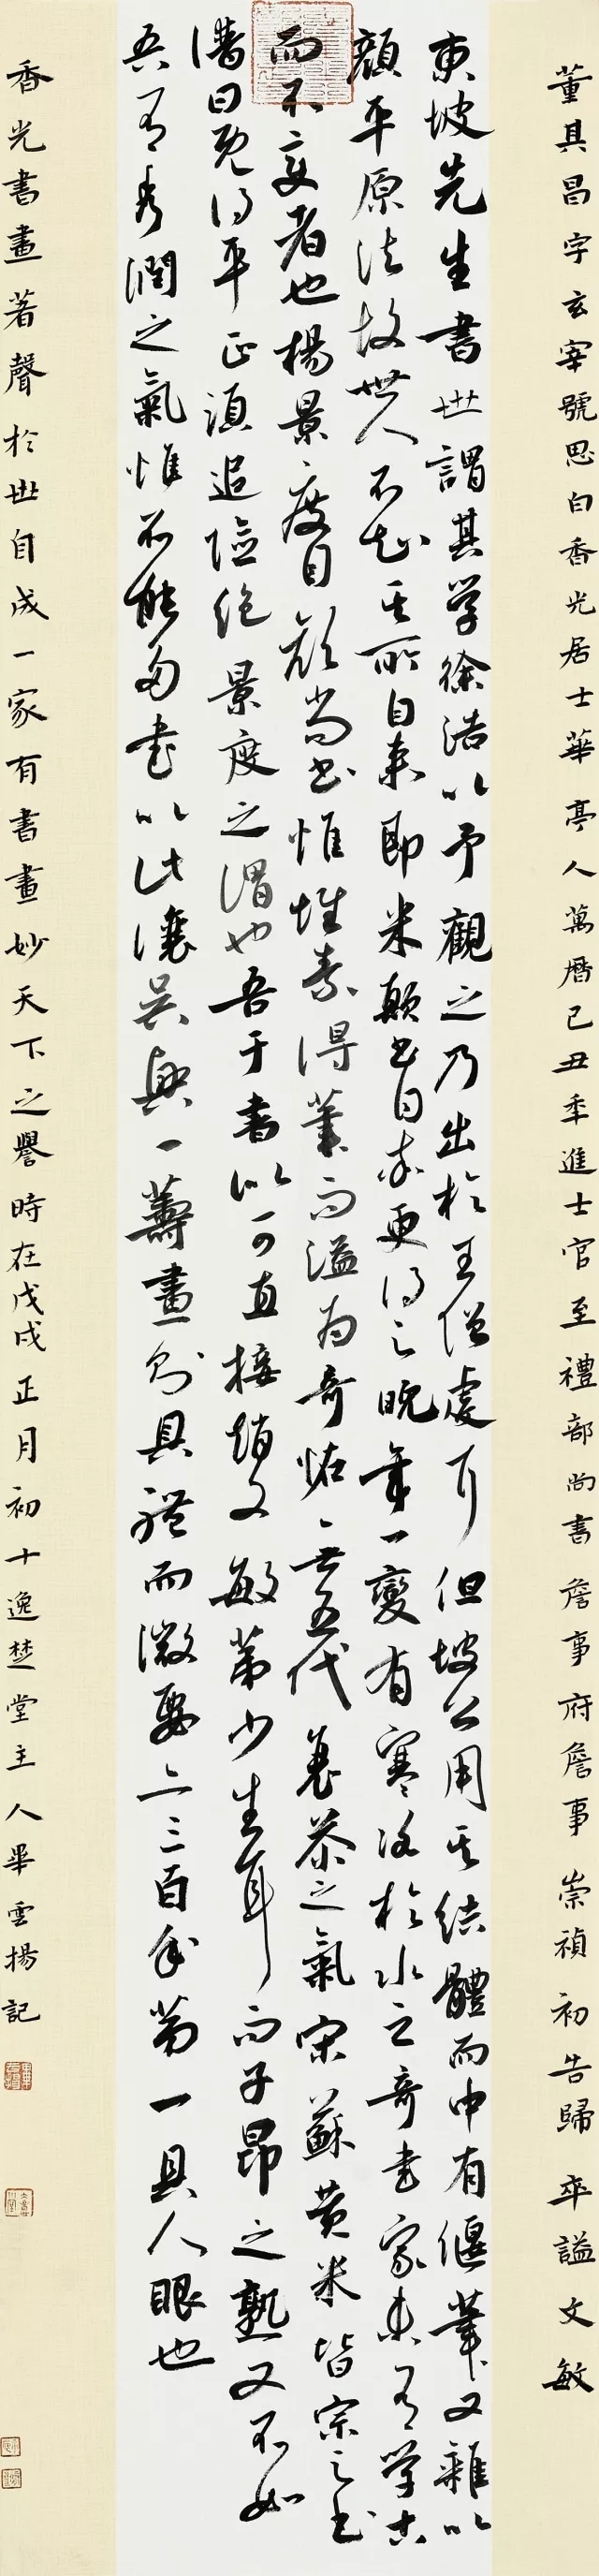 董其昌字玄宰號思白香光居士華亭人萬曆己丑年進士官至禮部尚書詹事府詹事崇禎初告歸卒謚文敏
東坡先生書世謂其學徐浩以予觀之乃出於王僧虔耳但坡公用其結體而中有偃筆又雜以
顏平原法故世人不知其所自來即米顛書自率更得之晚年一變有寒溪於水之奇書家未有學古
而不變者也楊景度自顏尚書懷素得筆而溢為奇怪無五代衰苶之氣宋蘇黃米皆宗之書
譜曰既得平正須追險絕景度之謂也吾于書似可直接趙文敏第少生耳而子昂之熟又不如
吾有秀潤之氣惟不能多書以此讓吳興一籌畫則具體而微要亦三百年第一具人眼也
香光書畫著聲於世自成一家有書畫妙天下之譽時在戊戌正月初十逸楚堂主人畢雲揚記